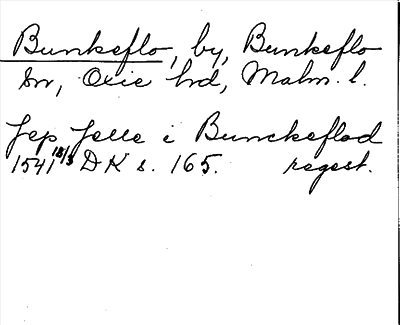 Bunkeflo, by, Bunkeflo
sn, Oxie hd, Malm. l.
Jep Jelle i Bunckeflod
1541 18/3 DK s. 165. regest.